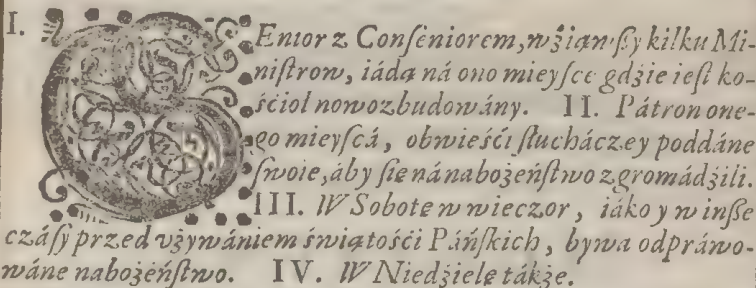 I. SEnior z Conſeniorem, wźiąwſſy kilku Mi-
niſtrow, iádą ná ono mieyſce gdźie ieſt ko-
śćioł nowozbudowány. II. Pátron one-
go mieyſcá, obwieśći ſłucháczey poddáne
ſwoie, áby ſię ná nabożeńſtwo zgromádźili.
III. W Sobotę w wieczor, iáko y w inſſe
czáſſy przed vżywániem świątośći Páńſkich, bywa odpráwo-
wáne nabożeńſtwo. IV. W Niedźielę tákże.